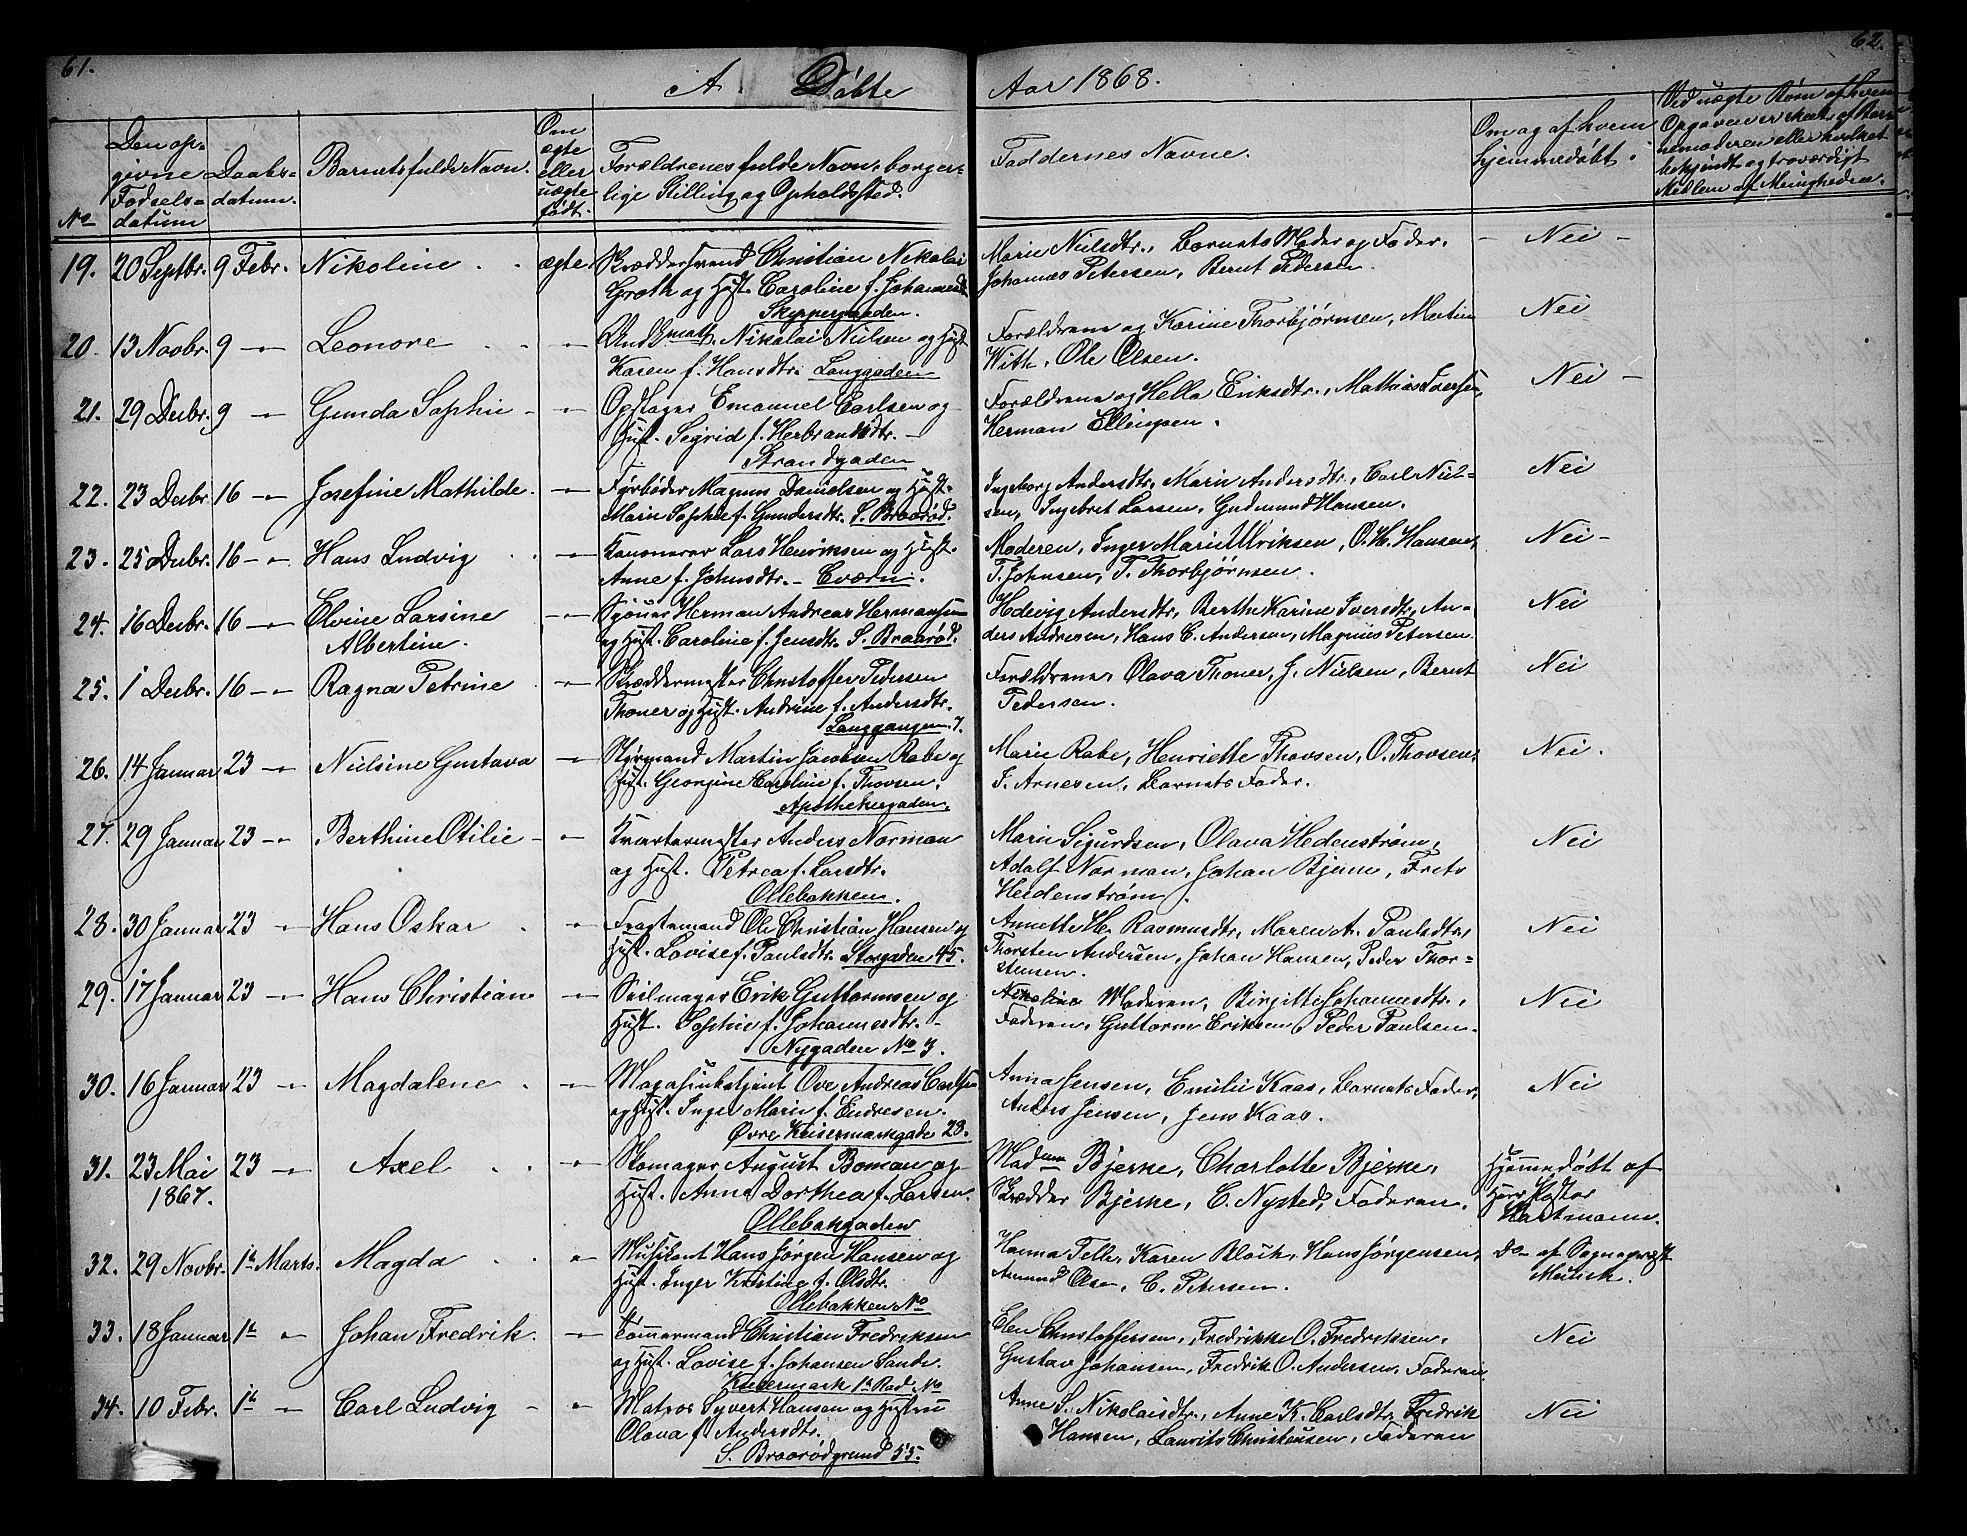 61.
62.
A Döbte
Aar 1868.
No
Den op-
givne
Fødsels-
datum
Daabs-
datum.
Barnets fulde Navn.
Om
ægte
eller
uægte
født.
Forældrenes fulde Navn, borger-
lige Stilling og Opholdssted.
Faddernes Navne.
Om og af hvem
hjemmedøbt.
Ved uægte Børn af hvem
Opgaven er skeet, af Barne-
nemoderen eller hvilket
bekjendt og troværdigt
Medlem af Menigheden.
19. 20 Septbr. 9 Febr. Nikoline ægte Skræddersvend Christian Nikolai
Groth og Hust. Caroline f. Johannesdt.
Skippergaden.
Marie Nielsdtr., Barnets Moder og Fader,
Johannes Petersen, Bernt Pedersen.
Nei
20. 13 Novbr. 9 — Leonore — Nikolai Nielsen og Hust
Karen f. Hansdtr. Langgaden
Forældrene og Karine Thorbjørnsen, Martin
With, Ole Olsen.
Nei
21. 29 Decbr. 9 — Gunda Sophie — Opslager Emanuel Carlsen og
Hust. Sigrid f. Herbrandsdtr.
Strandgaden
Forældrene og Hella Eriksdtr., Mathias Iversen,
Herman Ellingsen.
Nei
22. 23 Decbr. 16 — Josefine Mathilde. — Fyrbøder Magnus Danielsen og Hust.
Marie Sophie f. Gundersdtr. S. Braarød.
Ingeborg Andersdtr., Marie Andersdtr., Carl Niel-
sen, Ingebret Larsen, Gudmund Hansen.
Nei
23. 25 Decbr. 16 — Hans Ludvig — Kanoneer Lars Henriksen og Hust.
Anne f. Johnsdtr. - Eværn.
Moderen, Inger Marie Ulriksen, O. H. Hansen,
T. Johnsen, T. Thorbjørnsen.
Nei
24. 16 Decbr. 16 — Elvine Larsine
Albertine. — Sjouer Herman Andreas Hermansen
og Hust. Caroline f. Jensdtr. S. Braarød.
Hedevig Andersdtr., Berthe Karine Iversdtr., An-
ders Andresen, Hans C. Andersen, Magnus Petersen
Nei
25. 1 Decbr. 16 — Ragna Petrine — Skræddermester Christoffer Pedersen
Thoner og Hust. Andrine f. Andersdtr.
Langgangen 7.
Forældrene, Olava Thoner, J. Nielsen, Bernt
Pedersen.
Nei
26. 14 Januar 23 — Nielsine Gustava — Styrmand Martin Jacobsen Rabe og
Hust. Georgine Caroline f. Thovsen.
Apothekergaden.
Marie Rabe, Henriette Thovsen, O. Thovsen,
F. Arnesen, Barnets Fader.
Nei.
27. 29 Januar 23 — Berthine Otilie — Kvartermester Anders Norman
og Hust. Petrea f. Larsdtr.
Ollebakken.
Marie Sigurdsen, Olava Hedenstrøm,
Adolf Norman, Johan Bjerne, Frets
Heidenstrøm.
Nei
28. 30 Januar 23 — Hans Oskar — Fragtemand Ole Christian Hansen og
Hust. Lovise f. Paulsdtr. Storgaden 45.
Annette H. Rasmusdtr., Maren A. Paulsdtr.,
Thorsten Andersen, Johan Hansen, Peder Thor-
stensen.
Nei
29. 17 Januar 23 — Hans Christian — Seilmager Erik Guttormsen og
Hust. Sophie f. Johannesdtr.
Nygaden No 3.
Nikoline Moderen, Birgitte Johannesdtr.,
Faderen, Guttorm Eriksen, Peder Paulsen.
Nei
30. 16 Januar 23 — Magdalene — Magasinbetjent Ove Andreas Carlsen
og Hust. Inger Marie f. Endresen.
Øvre Keisermarkgade 28.
Anna Jensen, Emilie Kaas, Barnets Fader,
Anders Jensen, Jens Kaas.
Nei
31. 23 Mai
1867. 23 — Axel — Skomager August Boman og
Hust. Anna Dorthea f. Larsen.
Ollebakgaden
Madme Bjerke, Charlotte Bjerke,
Skrædder Bjerke, C. Nysted, Faderen.
Hjemmedøbt af
Herr Pastor
Hartmann.
32. 29 Novbr. 1ste Marts. Magda — Musikant Hans Jørgen Hansen og
Hust. Inger Kristine f. Olsdtr.
Ollebakken No
Hanna Telle, Karen Bloch, Hans Jørgensen,
Amund Olsen, C. Petersen.
Do af Sognepræst
Münich.
33. 18 Januar 1ste — Johan Fredrik. — Tømmermand Christian Fredriksen
og Hust. Lovise f. Johansen Sande.
Keisermark 1ste Rad No
Elen Christoffersen, Fredrikke O. Fredriksen,
Gustav Johansen, Fredrik O. Andersen, Faderen
Nei
34. 10 Febr. 1ste — Carl Ludvig — Matros Syvert Hansen og Hustru
Olava f. Andersdtr.
S. Braarødgrund 55.
Anne S. Nikolaisdtr., Anne K. Carlsdtr., Fredrik
Hansen, Laurits Christensen, Faderen
Nei